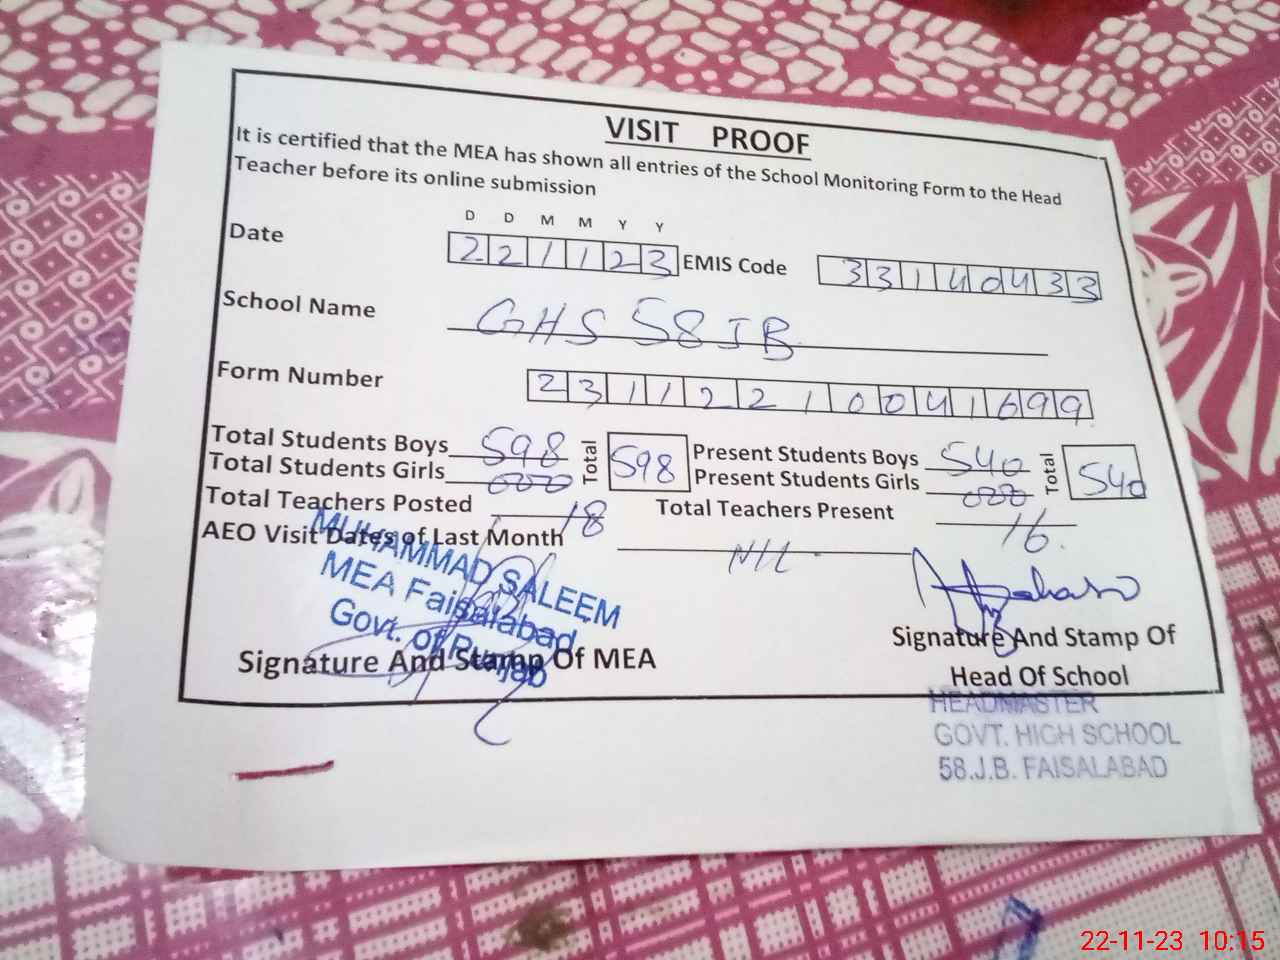 VISIT PROOF
It is certified that the MEA has shown all entries of the School Monitoring Form to the Head
Teacher before its online submission
D D M M Y Y
Date 221123 EMIS Code 33140433
School Name GHS 58 JB
Form Number 23112210041699
Total Students Boys 598 Total 598 Present Students Boys 540 Total 540
Total Students Girls 000 Present Students Girls 000
Total Teachers Posted 18 Total Teachers Present 16.
AEO Visit Dates of Last Month NIL
MUHAMMAD SALEEM
MEA Faisalabad
Govt. of Punjab
Signature And Stamp Of MEA
Signature And Stamp Of
Head Of School
HEADMASTER
GOVT. HIGH SCHOOL
58.J.B. FAISALABAD
22-11-23 10:15